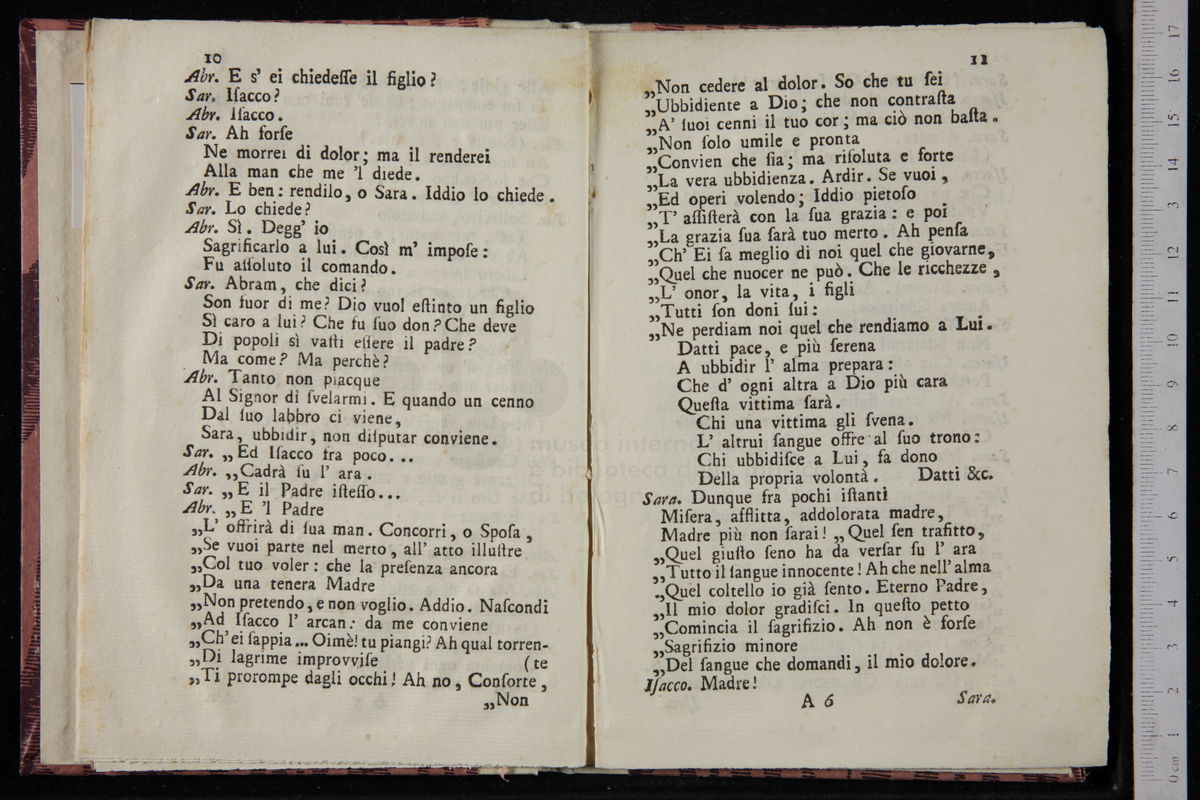 10
Abr. E s' ei chiedeſſe il figlio?
Sar. Iſacco?
Abr. Iſacco.
Sar. Ah forſe
Ne morrei di dolor; ma il renderei
Alla man che me 'l diede.
Abr. E ben: rendilo, o Sara. Iddio lo chiede.
Sar. Lo chiede?
Abr. Sì. Degg' io
Sagrificarlo a lui. Così m' impoſe:
Fu aſſoluto il comando.
Sar. Abram, che dici?
Son fuor di me? Dio vuol eſtinto un figlio
Sì caro a lui? Che fu ſuo don? Che deve
Di popoli sì vaſti eſſere il padre?
Ma come? Ma perchè?
Abr. Tanto non piacque
Al Signor di ſvelarmi. E quando un cenno
Dal ſuo labbro ci viene,
Sara, ubbidir, non diſputar conviene.
Sar. „Ed Iſacco fra poco...
Abr. „Cadrà ſu l' ara.
Sar. „E il Padre iſteſſo...
Abr. „E 'l Padre
„L' offrirà di ſua man. Concorri, o Spoſa,
„Se vuoi parte nel merto, all' atto illuſtre
„Col tuo voler: che la preſenza ancora
„Da una tenera Madre
„Non pretendo, e non voglio. Addio. Naſcondi
„Ad Iſacco l' arcan: da me conviene
„Ch' ei ſappia... Oimè! tu piangi? Ah qual torren-
„Di lagrime improvviſe (te
„Ti prorompe dagli occhi! Ah no, Conſorte,
„Non
11
„Non cedere al dolor. So che tu ſei
„Ubbidiente a Dio; che non contraſta
„A' ſuoi cenni il tuo cor; ma ciò non baſta.
„Non ſolo umile e pronta
„Convien che ſia; ma riſoluta e forte
„La vera ubbidienza. Ardir. Se vuoi,
„Ed operi volendo; Iddio pietoſo
„T' aſſiſterà con la ſua grazia: e poi
„La grazia ſua ſarà tuo merto. Ah penſa
„Ch' Ei ſa meglio di noi quel che giovarne,
„Quel che nuocer ne può. Che le ricchezze,
„L' onor, la vita, i figli
„Tutti ſon doni ſui:
„Ne perdiam noi quel che rendiamo a Lui.
Datti pace, e più ſerena
A ubbidir l' alma prepara:
Che d' ogni altra a Dio più cara
Queſta vittima ſarà.
Chi una vittima gli ſvena.
L' altrui ſangue offre al ſuo trono:
Chi ubbidiſce a Lui, fa dono
Della propria volontà. Datti &c.
Sara. Dunque fra pochi iſtanti
Miſera, afflitta, addolorata madre,
Madre più non ſarai! „Quel ſen trafitto,
„Quel giuſto ſeno ha da verſar ſu l' ara
„Tutto il ſangue innocente! Ah che nell' alma
„Quel coltello io già ſento. Eterno Padre,
„Il mio dolor gradiſci. In queſto petto
„Comincia il ſagrifizio. Ah non è forſe
„Sagrifizio minore
„Del ſangue che domandi, il mio dolore.
Iſacco. Madre!
A 6 Sara.